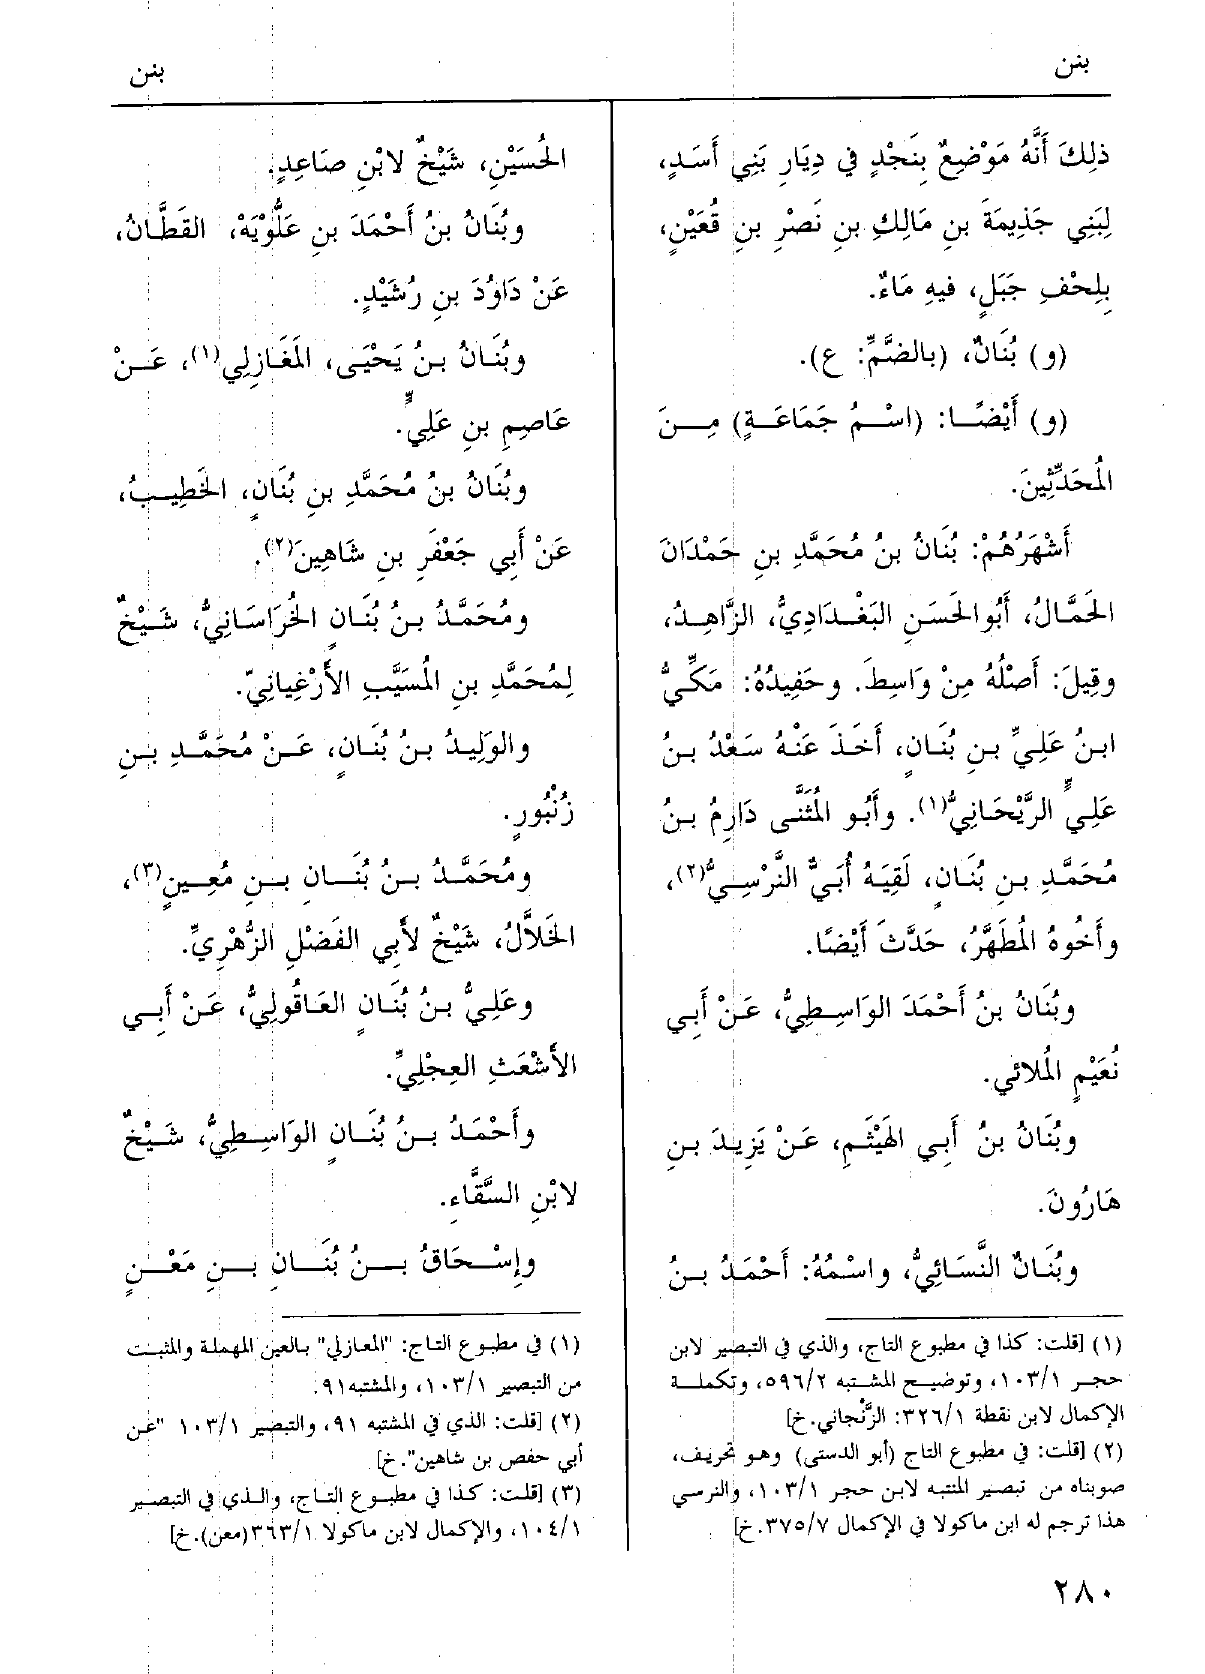 بنن
بنن
ذلِكَ أَنَّهُ مَوْضِعٌ بِنَجْدٍ في دِيَارِ بَنِي أَسَدٍ،
لِبَنِي جَذِيمَةَ بنِ مَالِكِ بنِ نَصْرِ بنِ قُعَيْنٍ،
بِلِحْفِ جَبَلٍ، فيهِ مَاءٌ.
(و) بُنَانٌ، (بالضَّمِّ: ع).
(و) أَيْضًا: (اسْمُ جَمَاعَةٍ) مِنَ
المُحَدِّثِينَ.
أَشْهَرُهُمْ: بُنَانُ بنُ مُحَمَّدِ بنِ حَمْدَانَ
الحَمَّالُ، أَبُو الحَسَنِ البَغْدَادِيُّ، الزَّاهِدُ،
وقِيلَ: أَصْلُهُ مِنْ وَاسِطَ. وحَفِيدُهُ: مَكِّيُّ
ابنُ عَلِيِّ بنِ بُنَانٍ، أَخَذَ عَنْهُ سَعْدُ بنُ
عَلِيٍّ الرَّيْحَانِيُّ(١). وأَبُو المُثَنَّى دَارِمُ بنُ
مُحَمَّدِ بنِ بُنَانٍ، لَقِيَهُ أُبَيٌّ النَّرْسِيُّ(٢)،
وأَخُوهُ المُطَهَّرُ، حَدَّثَ أَيْضًا.
وبُنَانُ بنُ أَحْمَدَ الوَاسِطِيُّ، عَنْ أَبِي
نُعَيْمٍ المُلائي.
وبُنَانُ بنُ أَبِي الهَيْثَمِ، عَنْ يَزِيدَ بنِ
هَارُونَ.
وبُنَانٌ النَّسَائِيُّ، واسْمُهُ: أَحْمَدُ بنُ
(١) [قلت: كذا في مطبوع التاج، والذي في التبصير لابن
حجر ١٠٣/١، وتوضيح المشتبه ٥٩٦/٢، وتكملة
الإكمال لابن نقطة ٣٢٦/١: الزَّنْجاني.خ]
(٢) [قلت: في مطبوع التاج (أبو الدستى) وهو تحريف،
صوبناه من تبصير المنتبه لابن حجر ١٠٣/١، والنرسي
هذا ترجم له ابن ماكولا في الإكمال ٣٧٥/٧.خ]
الحُسَيْنِ، شَيْخٌ لابْنِ صَاعِدٍ.
وبُنَانُ بنُ أَحْمَدَ بنِ عَلُّوْيَهْ، القَطَّانُ،
عَنْ دَاوُدَ بنِ رُشَيْدٍ.
وبُنَانُ بنُ يَحْيَى، المَغَازِلي(١)، عَنْ
عَاصِمِ بنِ عَلِيٍّ.
وبُنَانُ بنُ مُحَمَّدِ بنِ بُنَانٍ، الخَطِيبُ،
عَنْ أَبِي جَعْفَرِ بنِ شَاهِينَ(٢).
ومُحَمَّدُ بنُ بُنَانٍ الخُرَاسَانِيُّ، شَيْخٌ
لِمُحَمَّدِ بنِ المُسَيَّبِ الأَرْغِيانِيّ.
والوَلِيدُ بنُ بُنَانٍ، عَنْ مُحَمَّدِ بنِ
زُنْبُورٍ.
ومُحَمَّدُ بنُ بُنَانِ بنِ مُعِينٍ(٣)،
الخَلاَّلُ، شَيْخٌ لأَبِي الفَضْلِ الزُّهْرِيِّ.
وعَلِيُّ بنُ بُنَانٍ العَاقُولِيُّ، عَنْ أَبِي
الأَشْعَثِ العِجْلِيِّ.
وأَحْمَدُ بنُ بُنَانٍ الوَاسِطِيُّ، شَيْخٌ
لابْنِ السَّقَّاءِ.
وإِسْحَاقُ بنُ بُنَانِ بنِ مَعْنٍ
(١) في مطبوع التاج: "المعازلي" بالعين المهملة والمثبت
من التبصير ١٠٣/١، والمشتبه ٩١.
(٢) [قلت: الذي في المشتبه ٩١، والتبصير ١٠٣/١ "عن
أبي حفص بن شاهين".خ]
(٣) [قلت: كذا في مطبوع التاج، والذي في التبصير
١٠٤/١، والإكمال لابن ماكولا ٣٦٣/١(معن).خ]
٢٨٠